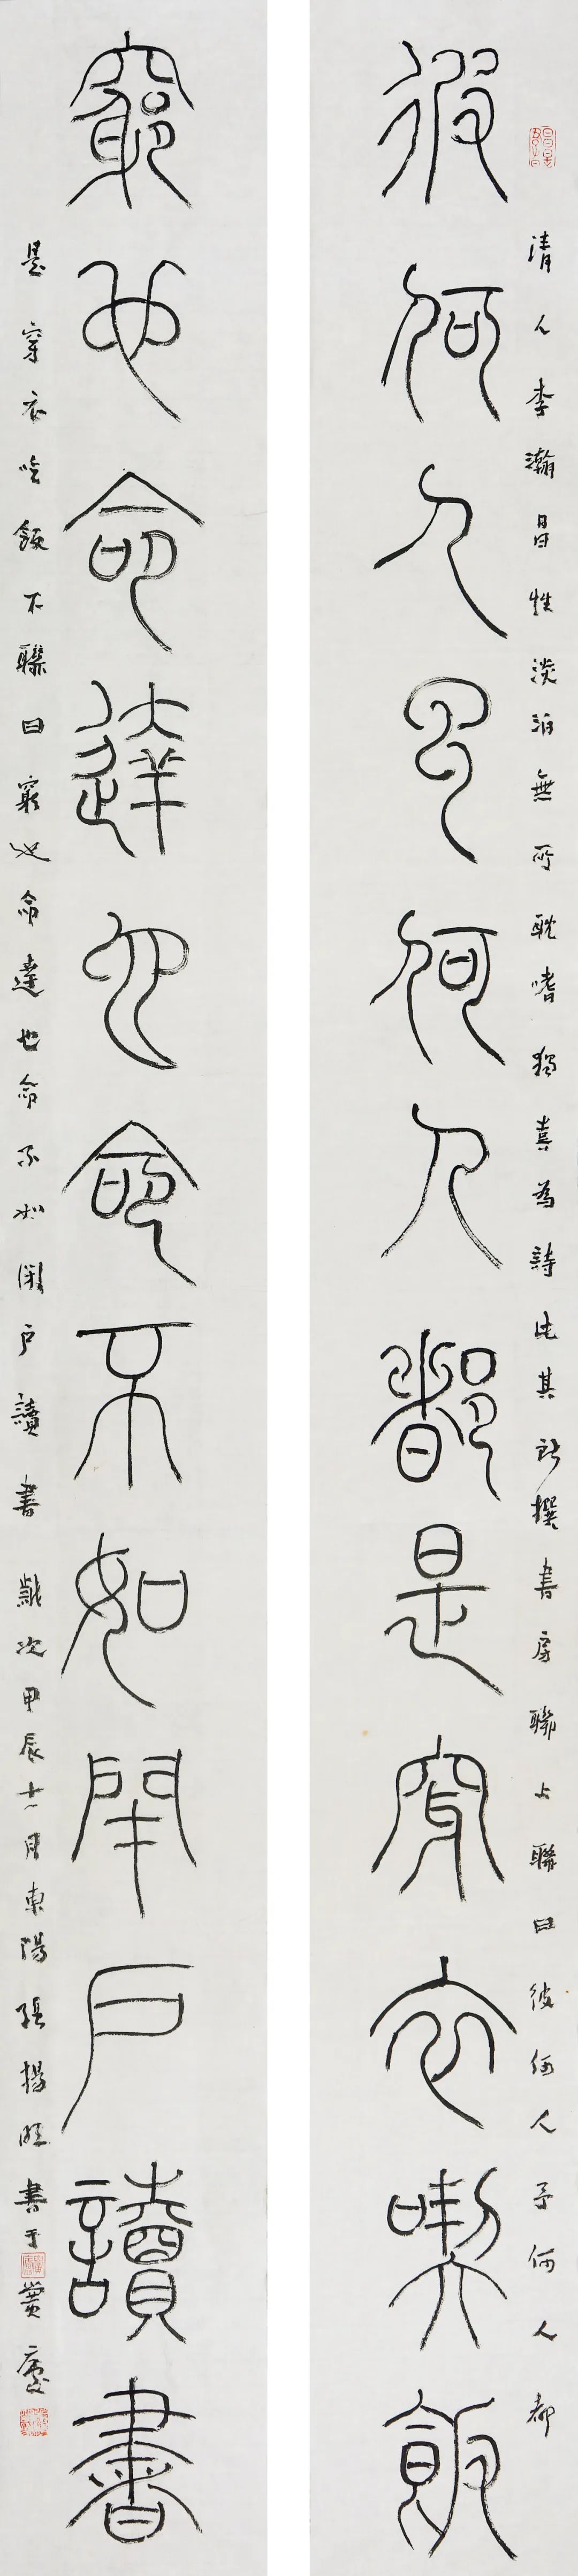 清人李瀚昌性淡泊無所耽嗜獨喜為詩此其所撰書房聯上聯曰彼何人予何人都
彼何人予何人都是穿衣喫飯
窮也命達也命不如閉戶讀書
是穿衣喫飯下聯曰窮也命達也命不如閉戶讀書歲次甲辰十一月東陽張揚旺書于